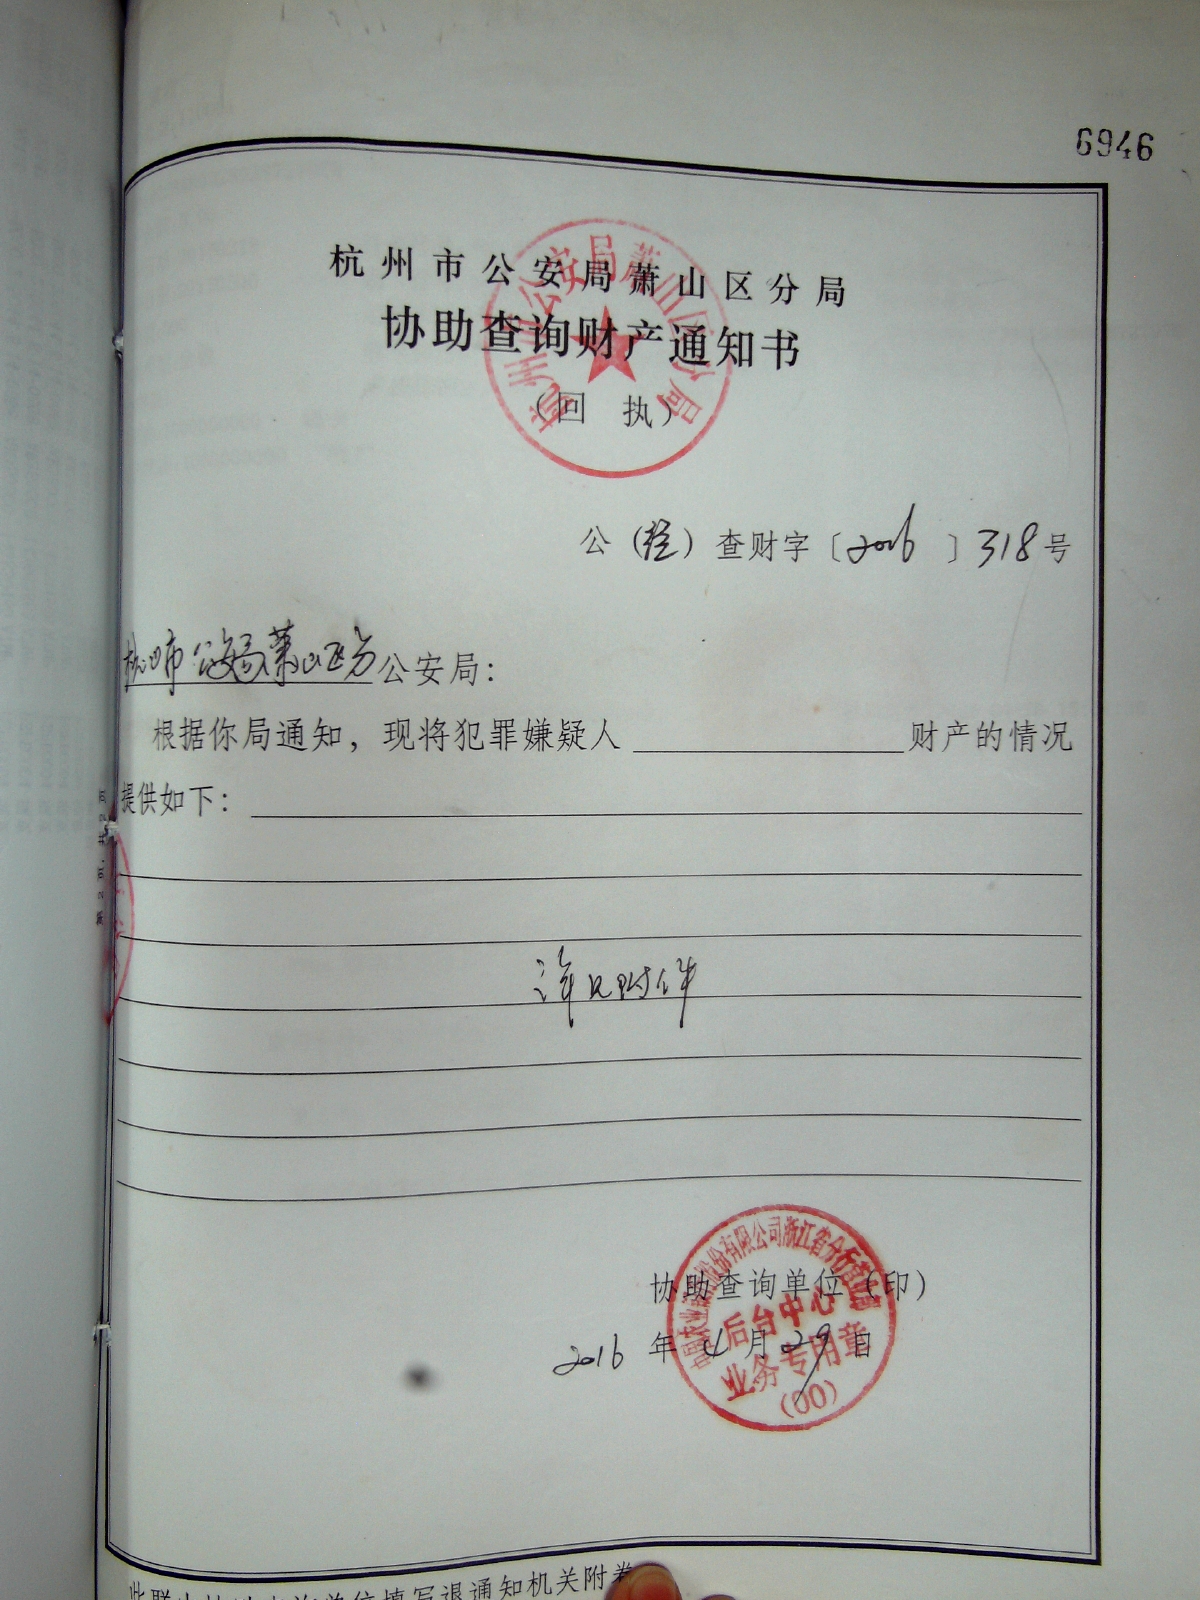 6946
杭州市公安局萧山区分局
协助查询财产通知书
（回 执）
杭州市公安局萧山区分局
公（经）查财字〔2016〕318号
杭州市公安局萧山区分公安局：
根据你局通知，现将犯罪嫌疑人 财产的情况
提供如下：
详见附件
协助查询单位（印）
2016 年 4 月 29 日
中国农业银行股份有限公司浙江省分行
后台中心
业务专用章
(00)
此联由协助查询单位填写退通知机关附卷